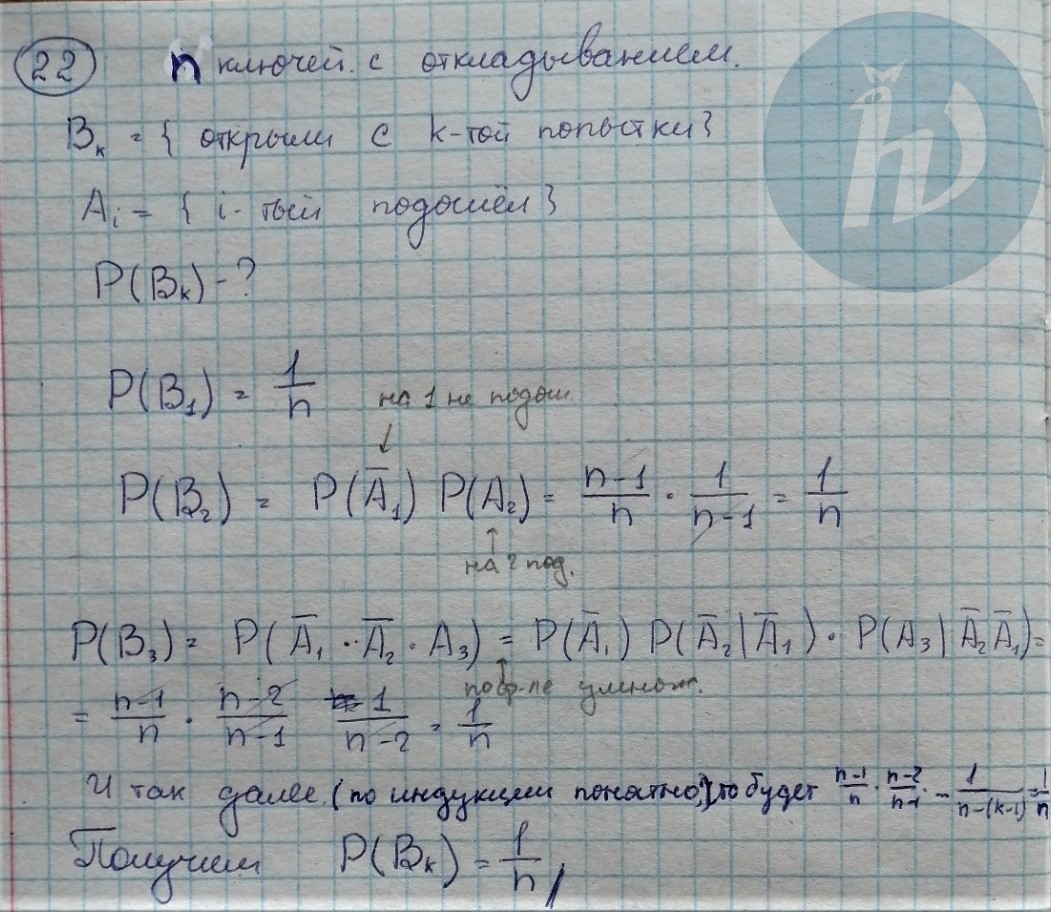 22 n ключей с откладыванием.
B_k = { открыли с k-той попытки }
A_i = { i-тый подошёл }
P(B_k) - ?
P(B_1) = 1/n
на 1 не подош.
P(B_2) = P(Ā_1) P(A_2) = (n-1)/n · 1/(n-1) = 1/n
на 2 под.
P(B_3) = P(Ā_1 · Ā_2 · A_3) = P(Ā_1) P(Ā_2|Ā_1) · P(A_3|Ā_2Ā_1) =
по ф-ле умнож.
= (n-1)/n · (n-2)/(n-1) 1/(n-2) = 1/n
И так далее (по индукции понятно), то будет (n-1)/n · (n-2)/(n-1) ... 1/(n-(k-1)) = 1/n
Получим P(B_k) = 1/n